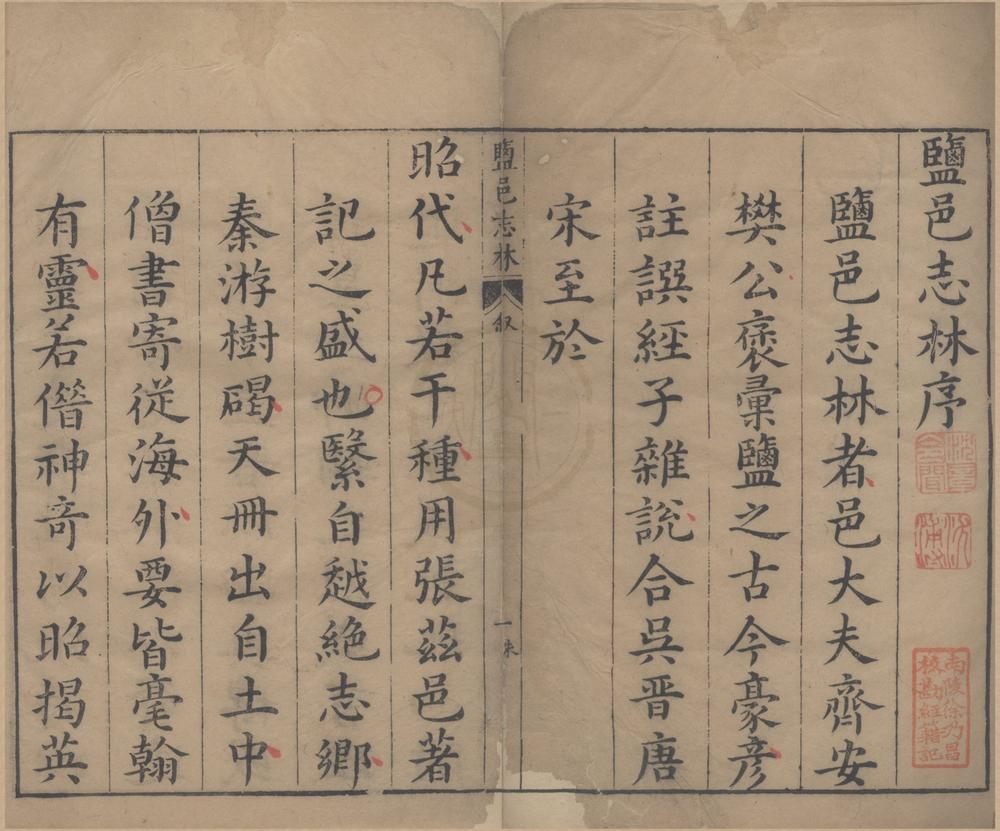 鹽邑志林序
鹽邑志林者邑大夫齊安
樊公裒彙鹽之古今豪彥
註譔經子雜說合吳晋唐
宋至於
鹽邑志林
叙
一
昭代凡若干種用張茲邑著
記之盛也繄自越絶志鄉
秦游樹碣天冊出自土中
僧書寄從海外要皆毫翰
有靈若僭神奇以昭揭英
南陵徐乃昌
校勘經籍記